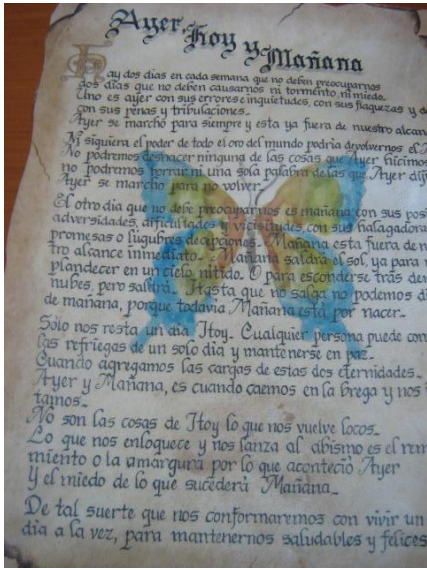 Ayer, Hoy y Mañana
Hay dos dias en cada semana que no deben preocuparnos
dos dias que no deben causarnos ni tormento, ni miedo.
Uno es ayer con sus errores e inquietudes, con sus flaquezas y
con sus penas y tribulaciones.
Ayer se marchó para siempre y esta ya fuera de nuestro
Ni siquiera el poder de todo el oro del mundo podria devolvernos el
No podremos deshacer ninguna de las cosas que Ayer hicimos
no podremos borrar ni una sola palabra de las que Ayer
Ayer se marchó para no volver.
El otro dia que no debe preocuparnos es mañana con sus
adversidades, dificultades y vicisitudes, con sus
promesas o lúgubres decepciones. Mañana esta fuera de
tro alcance inmediato. Mañana saldrá el sol, ya para
plandecer en un cielo nítido. O para esconderse trás
nubes, pero saldrá. Hasta que no salga no podemos
de mañana, porque todavia Mañana está por nacer.
Sólo nos resta un dia Hoy. Cualquier persona puede
las refriegas de un solo dia y mantenerse en paz.
Cuando agregamos las cargas de estas dos eternidades.
Ayer y Mañana, es cuando caemos en la brega y nos
tamos.
No son las cosas de Hoy lo que nos vuelve locos.
Lo que nos enloquece y nos lanza al abismo es el
miento o la amargura por lo que aconteció Ayer
Y el miedo de lo que sucederá Mañana.
De tal suerte que nos conformaremos con vivir un
dia a la vez, para mantenernos saludables y felices